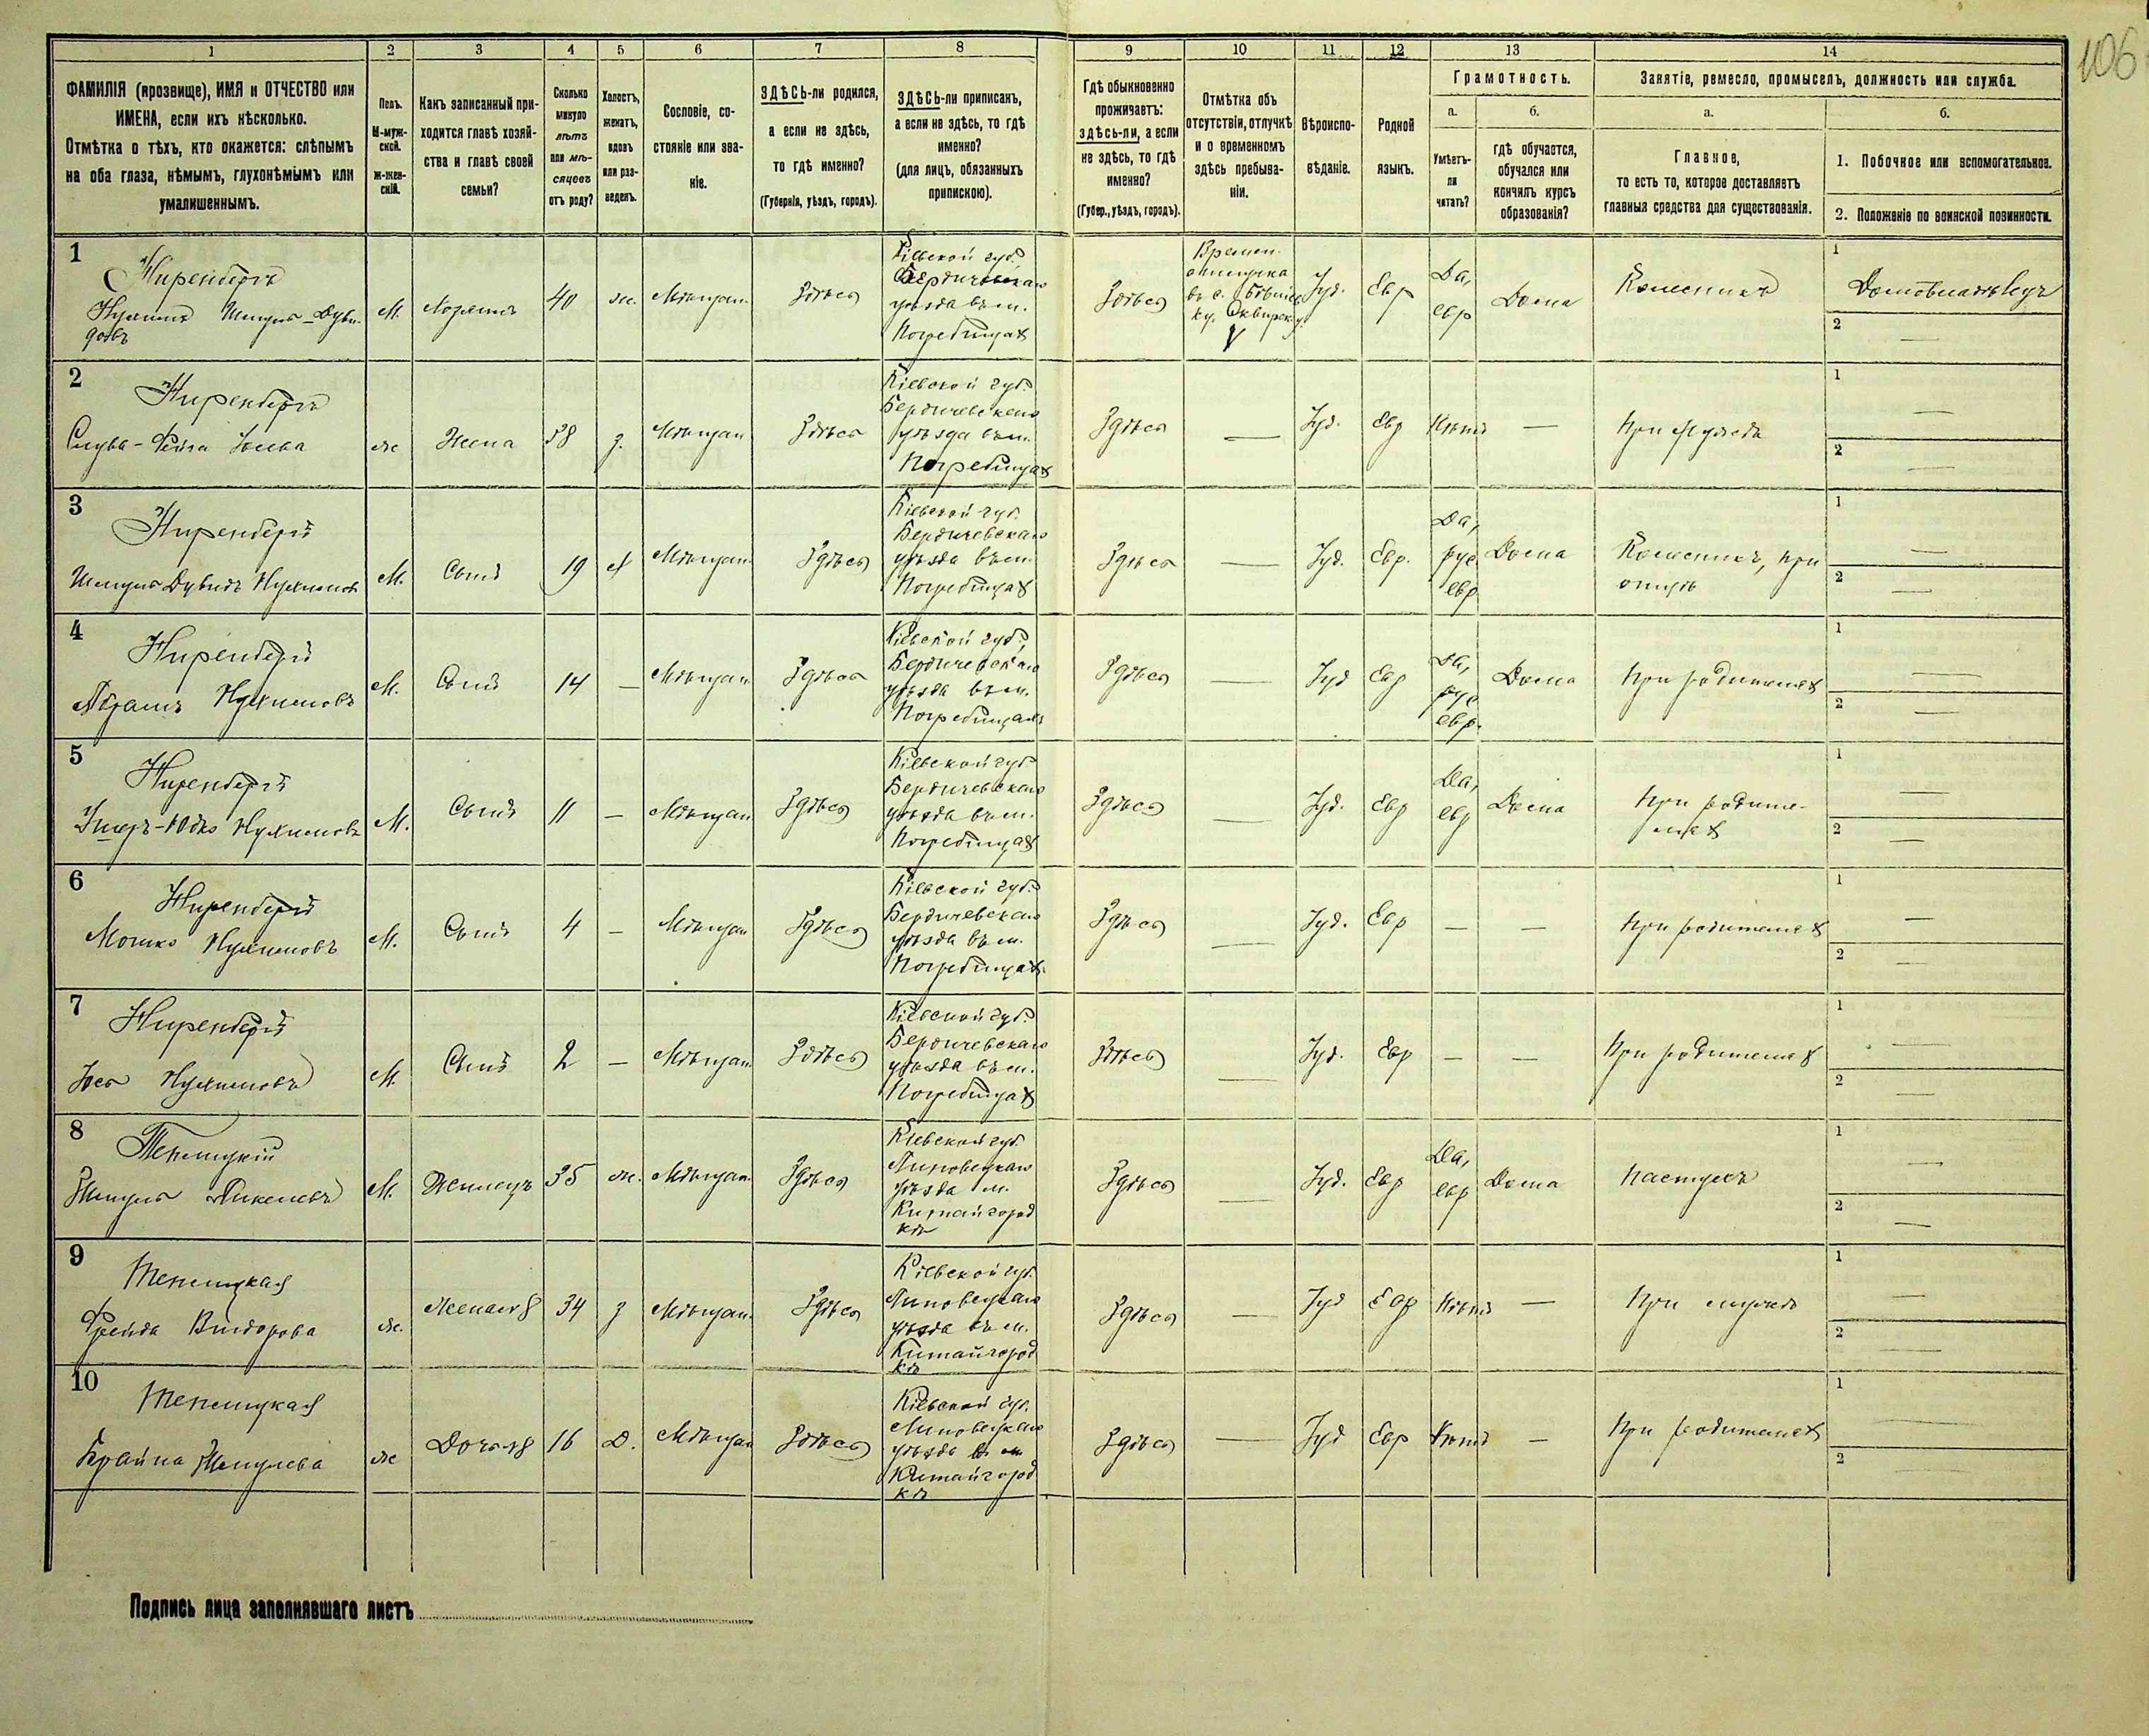 106
1 2 3 4 5 6 7 8 9 10 11 12 13 14
ФАМИЛІЯ (прозвище), ИМЯ и ОТЧЕСТВО или
ИМЕНА, если ихъ нѣсколько.
Отмѣтка о тѣхъ, кто окажется: слѣпымъ
на оба глаза, нѣмымъ, глухонѣмымъ или
умалишеннымъ.
Полъ.
М-муж-
ской.
Ж-жен-
скій.
Какъ записанный при-
ходится главѣ хозяй-
ства и главѣ своей
семьи?
Сколько
минуло
лѣтъ
или мѣ-
сяцевъ
отъ роду?
Холостъ,
женатъ,
вдовъ
или раз-
веденъ.
Сословіе, со-
стояніе или зва-
ніе.
ЗДѢСЬ-ли родился,
а если не здѣсь,
то гдѣ именно?
(Губернія, уѣздъ, городъ).
ЗДѢСЬ-ли приписанъ,
а если не здѣсь, то гдѣ
именно?
(для лицъ, обязанныхъ
припискою).
Гдѣ обыкновенно
проживаетъ:
здѣсь-ли, а если
не здѣсь, то гдѣ
именно?
(Губер., уѣздъ, городъ).
Отмѣтка объ
отсутствіи, отлучкѣ
и о временномъ
здѣсь пребыва-
ніи.
Вѣроиспо-
вѣданіе.
Родной
языкъ.
Грамотность.
а.
Умѣетъ-
ли
читать?
б.
гдѣ обучается,
обучался или
кончилъ курсъ
образованія?
Занятіе, ремесло, промыселъ, должность или служба.
а.
Главное,
то есть то, которое доставляетъ
главныя средства для существованія.
б.
1. Побочное или вспомогательное.
2. Положеніе по воинской повинности.
1
Ниренбергъ
Нухимъ Шмуль-Дуви-
довъ
М.
Хозяинъ
40
ж.
Мѣщан.
Здѣсь
Кіевской губ.
Бердичевскаго
уѣзда въ м.
Погребищах
Здѣсь
Времен.
отлучка
Іуд.
Евр
Да,
евр
Дома
1
Домовладѣлецъ
2
—
2
Ниренбергъ
ж
Жена
38
з.
Мѣщан
Здѣсь
Кіевской губ.
Бердичевскаго
уѣзда въ м.
Погребищах
Здѣсь
—
Іуд.
Евр
Нѣтъ
—
При мужѣ
1
—
2
—
3
Ниренбергъ
Шмуль Дувидъ Нухимовъ
М.
Сынъ
19
Мѣщан
Здѣсь
Кіевской губ.
Бердичевскаго
уѣзда въ м.
Погребищах
Здѣсь
—
Іуд.
Евр.
Да,
рус
евр
Дома
при
отцѣ
1
—
2
—
4
Ниренбергъ
Абрамъ Нухимовъ
М.
Сынъ
14
—
Мѣщан
Здѣсь
Кіевской губ.,
Бердичевскаго
уѣзда въ м.
Погребищахъ
Здѣсь
—
Іуд
Евр
Да,
рус
евр.
Дома
При родителях
1
—
2
—
5
Ниренбергъ
Нухимовъ
М.
Сынъ
11
—
Мѣщан
Здѣсь
Кіевской губ
Бердичевскаго
уѣзда въ м.
Погребищах
Здѣсь
—
Іуд.
Евр
Да,
евр
Дома
При родите-
лях
1
—
2
—
6
Ниренбергъ
Мошко Нухимовъ
М.
Сынъ
4
—
Мѣщан
Здѣсь
Кіевской губ.
Бердичевскаго
уѣзда въ м.
Погребищах
Здѣсь
—
Іуд.
Евр
—
—
При родителях
1
—
2
—
7
Ниренбергъ
Іось Нухимовъ
М.
Сынъ
2
—
Мѣщан.
Здѣсь
Кіевской губ.
Бердичевскаго
уѣзда въ м.
Погребищах
Здѣсь
—
Іуд.
Евр
—
—
При родителях
1
—
2
—
8
Шмуль
М.
Жилецъ
35
ж.
Мѣщан.
Здѣсь
Кіевской губ.
Липовецкаго
уѣзда м.
Китайгород
кѣ
Здѣсь
—
Іуд.
Евр
Да,
евр
Дома
Пастухъ
1
—
2
—
9
Фрейда
ж.
34
з
Мѣщан.
Здѣсь
Кіевской губ.
Липовецкаго
уѣзда въ м.
Китайгород
кѣ
Здѣсь
—
Іуд
Евр
Нѣтъ
—
При мужѣ
1
—
2
—
10
Шмулева
ж
Дочь
16
Д.
Мѣщан
Здѣсь
Кіевской губ.
Липовецкаго
уѣзда в м
Китайгород
кѣ
Здѣсь
—
Іуд
Евр
Нѣтъ
—
При родителях
1
—
2
—
Подпись лица заполнявшаго листъ